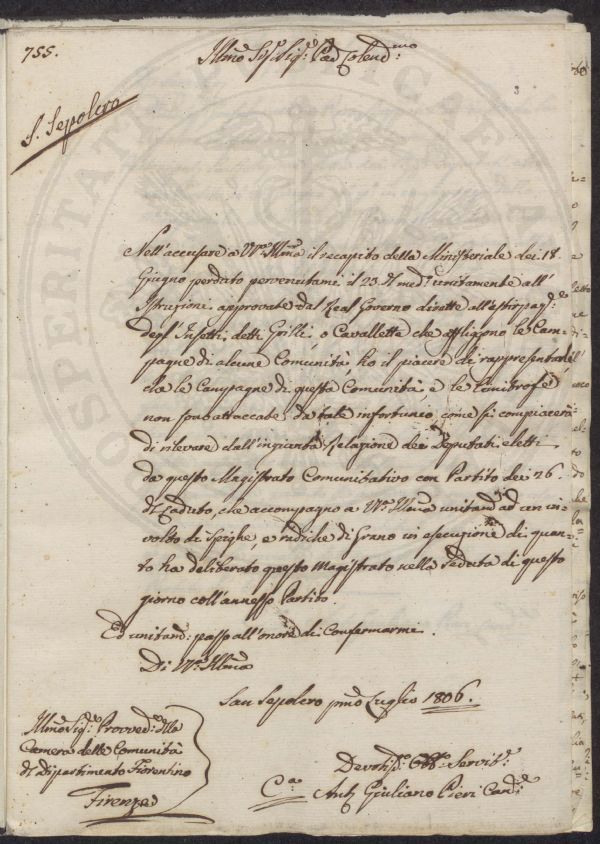 755.
Illmo Sig: Sig: Pad Colendmo:
S. Sepolcro
3
Nell'accusare a VSa: Illma il recapito della Ministeriale dei 18.
Giugno perduto pervenutami il 23. d.o med:o unitamente all'
Istruzioni approvate dal Real Governo dirette all'estirpaz:e
degl'Insetti detti Grilli, o Cavallette che affliggono le Cam-
pagne di alcune Comunità ho il piacere di rappresentarle
che le Campagne di questa Comunità, e le limitrofe
non sono attaccate da tale infortunio, come si compiacerà
di rilevare dall'ingiunta Relazione dei Deputati eletti
da questo Magistrato Comunitativo con Partito dei 26.
d.o caduto, che accompagno a VSa: Illma unitam: ad un in-
volto di Spighe, e radiche di Grano in esecuzione di quan-
to ha deliberato questo Magistrato nella Seduta di questo
giorno coll'annesso Partito.
Ed unitam: passo all'onore di Confermarmi
Di VSa: Illma
San Sepolcro pmo Luglio 1806.
Illmo Sig:e Provved:e della
Camera delle Comunità
di Dipartimento Fiorentino
Firenze
Devotis:o Obb:o Servit:e
Ant:o Giuliano Pieri Canc:e